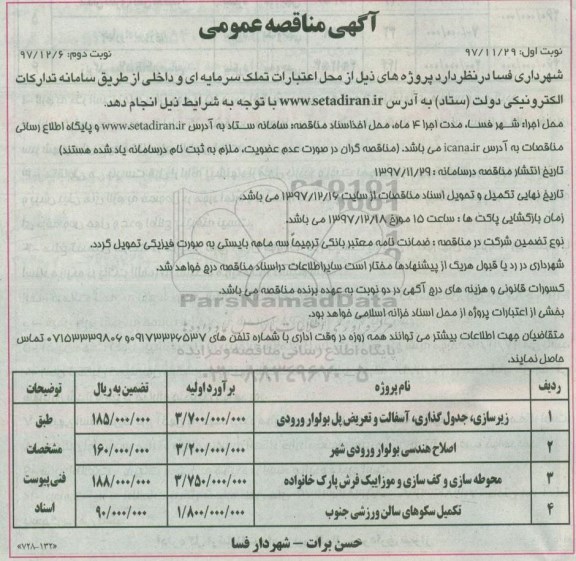 آگهی مناقصه عمومی
نوبت اول: ۹۷/۱۱/۲۹ نوبت دوم: ۹۷/۱۲/۶
شهرداری فسا در نظر دارد پروژه های ذیل از محل اعتبارات تملک سرمایه ای و داخلی از طریق سامانه تدارکات
الکترونیکی دولت (ستاد) به آدرس www.setadiran.ir با توجه به شرایط ذیل انجام دهد.
محل اجرا: شهر فسا، مدت اجرا ۴ ماه، محل اخذ اسناد مناقصه: سامانه ستاد به آدرس www.setadiran.ir و پایگاه اطلاع رسانی
مناقصات به آدرس icana.ir می باشد. (مناقصه گران در صورت عدم عضویت، ملزم به ثبت نام در سامانه یاد شده هستند)
تاریخ انتشار مناقصه در سامانه: ۱۳۹۷/۱۱/۲۹
تاریخ نهایی تکمیل و تحویل اسناد مناقصات: تا سایت ۱۳۹۷/۱۲/۱۶ می باشد.
زمان بازگشایی پاکت ها: ساعت ۱۵ مورخ ۱۳۹۷/۱۲/۱۸ می باشد.
نوع تضمین شرکت در مناقصه: ضمانت نامه معتبر بانکی ترجیحاً سه ماهه بایستی به صورت فیزیکی تحویل گردد.
شهرداری در رد یا قبول هریک از پیشنهادها مختار است سایر اطلاعات در اسناد مناقصه درج خواهد شد.
کسورات قانونی و هزینه های درج آگهی در دو نوبت به عهده برنده مناقصه می باشد.
بخشی از اعتبارات پروژه از محل اسناد خزانه اسلامی خواهد بود.
متقاضیان جهت اطلاعات بیشتر می توانند همه روزه در وقت اداری با شماره تلفن های ۰۹۱۷۳۳۲۶۵۳۷ و ۰۷۱۵۳۳۳۹۸۰۶ تماس
حاصل نمایند.
ردیف نام پروژه برآورد اولیه تضمین به ریال توضیحات
۱ زیرسازی، جدول گذاری، آسفالت و تعریض پل بولوار ورودی ۳/۷۰۰/۰۰۰/۰۰۰ ۱۸۵/۰۰۰/۰۰۰ طبق
۲ اصلاح هندسی بولوار ورودی شهر ۳/۲۰۰/۰۰۰/۰۰۰ ۱۶۰/۰۰۰/۰۰۰ مشخصات
۳ محوطه سازی و کف سازی و موزاییک فرش پارک خانواده ۳/۷۵۰/۰۰۰/۰۰۰ ۱۸۸/۰۰۰/۰۰۰ فنی پیوست
۴ تکمیل سکوهای سالن ورزشی جنوب ۱/۸۰۰/۰۰۰/۰۰۰ ۹۰/۰۰۰/۰۰۰ اسناد
حسن برات - شهردار فسا
«۷۲۸-۱۳۲»
ParsNamadData
پایگاه اطلاع رسانی مناقصه و مزایده
۰۲۱-۸۸۳۴۹۶۷۰-۵